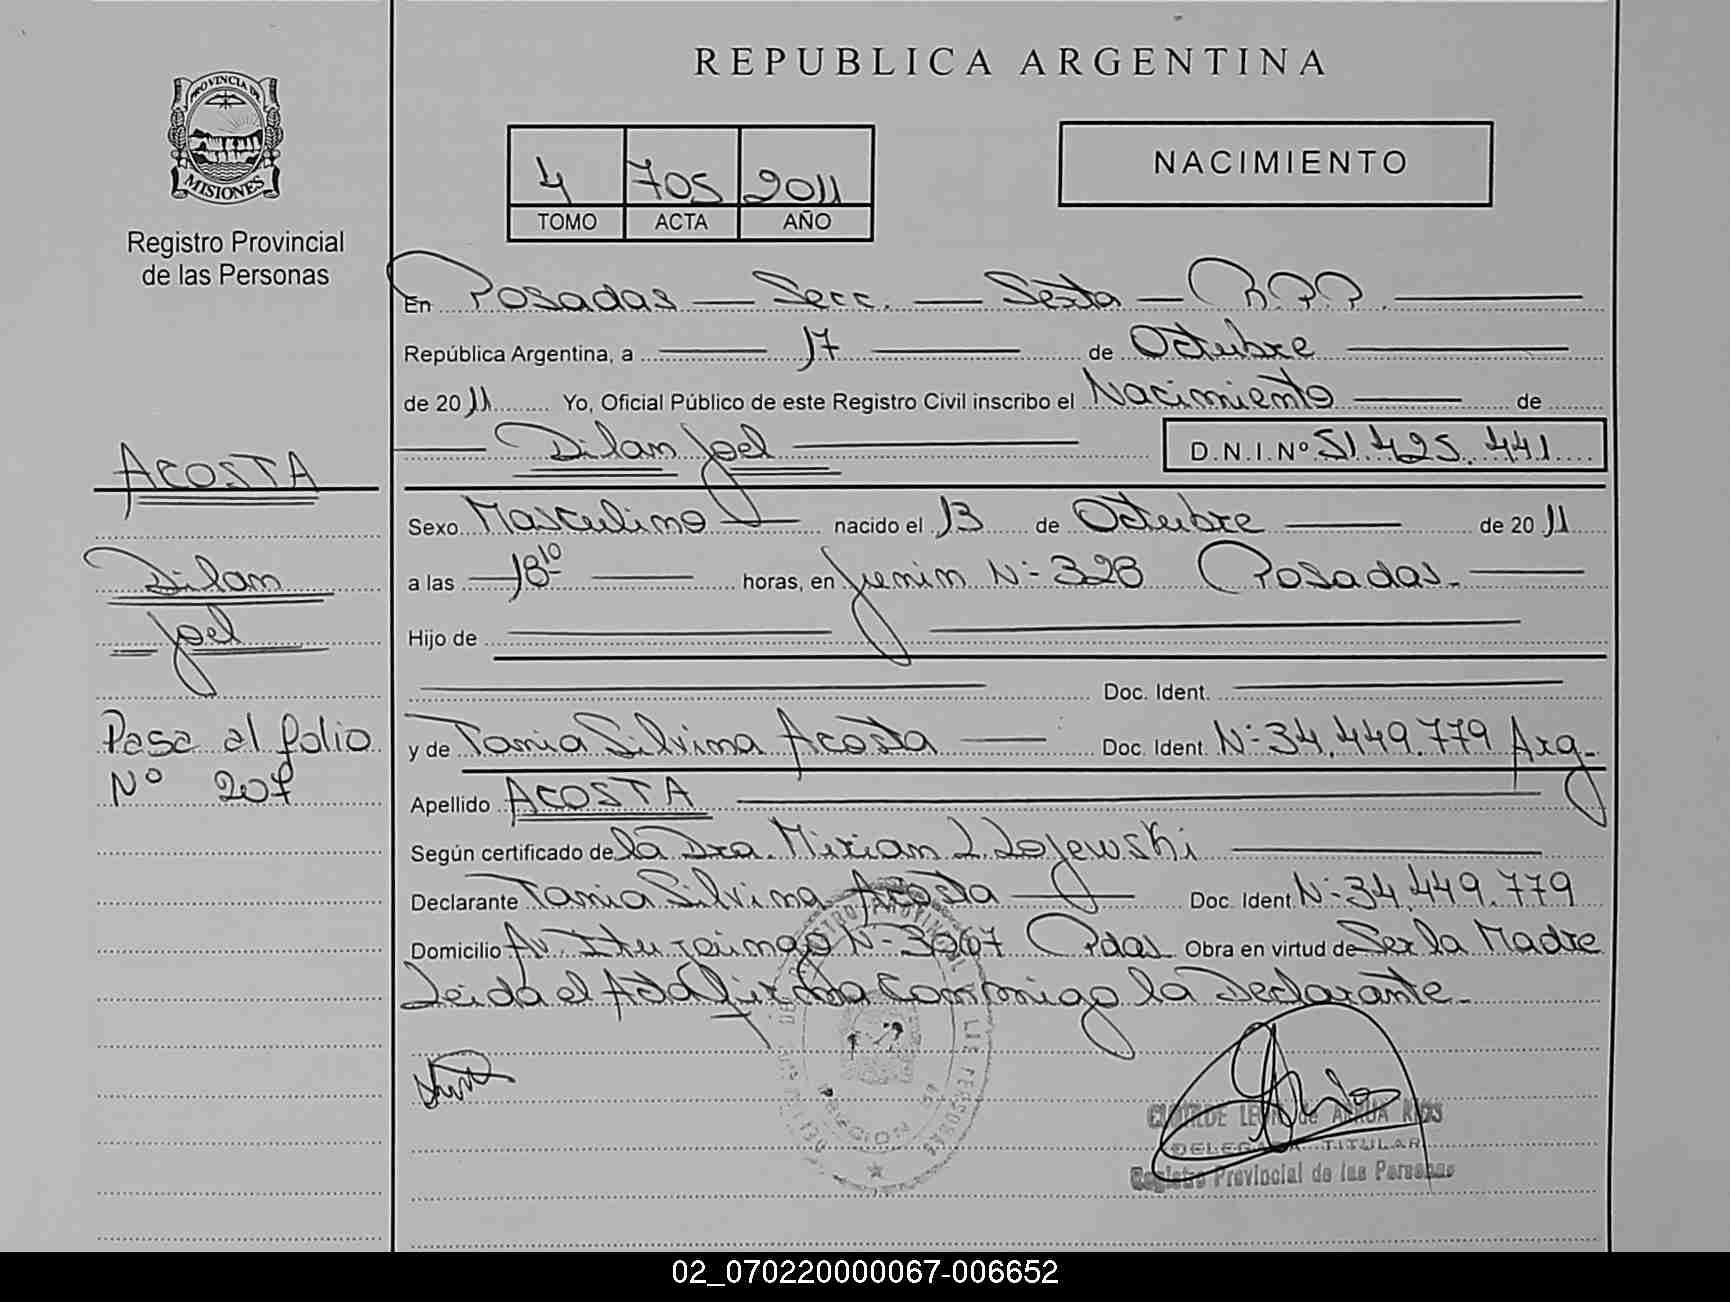 REPUBLICA ARGENTINA
PROVINCIA DE
MISIONES
Registro Provincial
de las Personas
4 705 2011
TOMO ACTA AÑO
NACIMIENTO
En Posadas — Secc. — Sexta — R.P.P.
República Argentina, a 17 de Octubre
de 2011 Yo, Oficial Público de este Registro Civil inscribo el Nacimiento de
Dilan Joel D.N.I.Nº 51.425.441
ACOSTA
Dilan
Joel
Pasa al folio
Nº 207
Sexo Masculino nacido el 13 de Octubre de 2011
a las 18 10 horas, en Junin Nº 328 Posadas.
Hijo de
Doc. Ident.
y de Tania Silvina Acosta Doc. Ident. Nº 34.449.779 Arg.
Apellido ACOSTA
Según certificado de la Dra. Mirian L. Lojewski
Declarante Tania Silvina Acosta Doc. Ident. Nº 34.449.779
Domicilio Av. Ituzaingo Nº 3067 Pdas Obra en virtud de Ser la Madre
Leida el Acta firma conmigo la Declarante.
DELEGADA TITULAR
Registro Provincial de las Personas
02_070220000067-006652